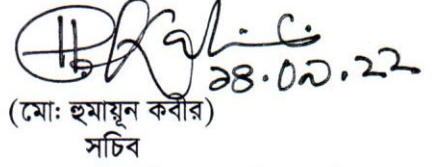 ১৪.০৯.২২
(মো: হুমায়ূন কবীর)
সচিব